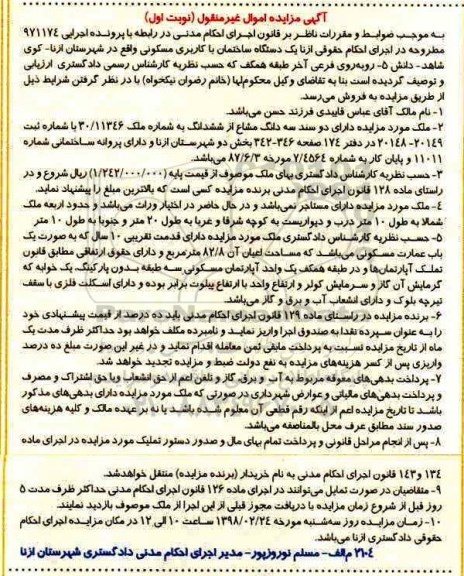 آگهی مزایده اموال غیرمنقول (نوبت اول)
به موجب ضوابط و مقررات ناظر بر قانون اجرای احکام مدنی در رابطه با پرونده اجرایی ۹۷۱۱۷۴
مطروحه در اجرای احکام حقوقی ازنا یک دستگاه ساختمان با کاربری مسکونی واقع در شهرستان ازنا- کوی
شاهد- دانش ۵- روبه‌روی فرعی آخر طبقه همکف که حسب نظریه کارشناس رسمی دادگستری ارزیابی
و توصیف گردیده است بنا به تقاضای وکیل محکوم‌لها (خانم رضوان نیکخواه) با در نظر گرفتن شرایط ذیل
از طریق مزایده به فروش می‌رسد.
۱- نام مالک آقای عباس قایبدی فرزند حسن می‌باشد.
۲- ملک مورد مزایده دارای دو سند سه دانگ مشاع از ششدانگ به شماره ملک ۳۰/۱۱۳۴۶ با شماره ثبت
۲۰۱۴۹- ۲۰۱۴۸ در دفتر ۱۷۴ صفحه ۳۴۶-۳۴۲ بخش دو شهرستان ازنا و دارای پروانه ساختمانی شماره
۱۱۰۱۱ و پایان کار به شماره ۷/۴۵۶۴ مورخه ۸۷/۶/۳ می‌باشد.
۳- حسب نظریه کارشناس دادگستری بهای ملک موصوف از قیمت پایه (۱/۲۴۲/۰۰۰/۰۰۰) ریال شروع و در
راستای ماده ۱۲۸ قانون اجرای احکام مدنی برنده مزایده کسی است که بالاترین مبلغ را پیشنهاد نماید.
۴- ملک مورد مزایده دارای مستاجر نمی‌باشد و در حال حاضر در اختیار وراث می‌باشد و حدود اربعه ملک
شمالا به طول ۱۰ متر درب و دیواریست به کوچه شرقا و غربا به طول ۲۰ متر و جنوبا به طول ۱۰ متر
۵- حسب نظریه کارشناس دادگستری ملک مورد مزایده دارای قدمت تقریبی ۱۰ سال که به صورت یک
باب عمارت مسکونی می‌باشد که مساحت اعیان آن ۸۲/۸ مترمربع و دارای حقوق ارتفاقی مطابق قانون
تملک آپارتمان‌ها و در طبقه همکف یک واحد آپارتمان مسکونی سه طبقه بدون پارکینگ، یک خوابه که
گرمایش آن گاز و سرمایش کولر و ارتفاع واحد با ارتفاع پیلوت برابر بوده و دارای اسکلت فلزی با سقف
تیرچه بلوک و دارای انشعاب آب و برق و گاز می‌باشد.
۶- برنده مزایده در راستای ماده ۱۲۹ قانون اجرای احکام مدنی باید ده درصد از قیمت پیشنهادی خود
را به عنوان سپرده نقدا به صندوق اجرا واریز نماید و نامبرده مکلف خواهد بود حداکثر ظرف مدت یک
ماه از تاریخ مزایده نسبت به پرداخت مابقی ثمن معامله اقدام نماید و در غیر این صورت مبلغ ده درصد
واریزی پس از کسر هزینه‌های مزایده به نفع دولت ضبط و مزایده تجدید خواهد شد.
۷- پرداخت بدهی‌های معوقه مربوط به آب و برق، گاز و تلفن اعم از حق انشعاب و یا حق اشتراک و مصرف
و پرداخت بدهی‌های مالیاتی و عوارض شهرداری در صورتی که ملک مورد مزایده دارای بدهی‌های مذکور
باشد تا تاریخ مزایده اعم از اینکه رقم قطعی آن معلوم شده باشد یا نه بر عهده مالک و کلیه هزینه‌های
صدور سند مطابق عرف محل بالمناصفه می‌باشد.
۸- پس از انجام مراحل قانونی و پرداخت تمام بهای مال و صدور دستور تملیک مورد مزایده در اجرای ماده
۱۳۴ و ۱۴۳ قانون اجرای احکام مدنی به نام خریدار (برنده مزایده) منتقل خواهدشد.
۹- متقاضیان در صورت تمایل می‌توانند در اجرای ماده ۱۲۶ قانون اجرای احکام مدنی حداکثر ظرف مدت ۵
روز قبل از شروع زمان مزایده با دریافت مجوز قبلی از این اجرا از ملک موصوف بازدید نمایند.
۱۰- زمان مزایده روز سه‌شنبه مورخه ۱۳۹۸/۰۲/۲۴ ساعت ۱۰ الی ۱۲ در مکان مزایده اجرای احکام
حقوقی دادگستری ازنا می‌باشد.
۲۱۰۴ م‌الف- مسلم نوروزپور- مدیر اجرای احکام مدنی دادگستری شهرستان ازنا